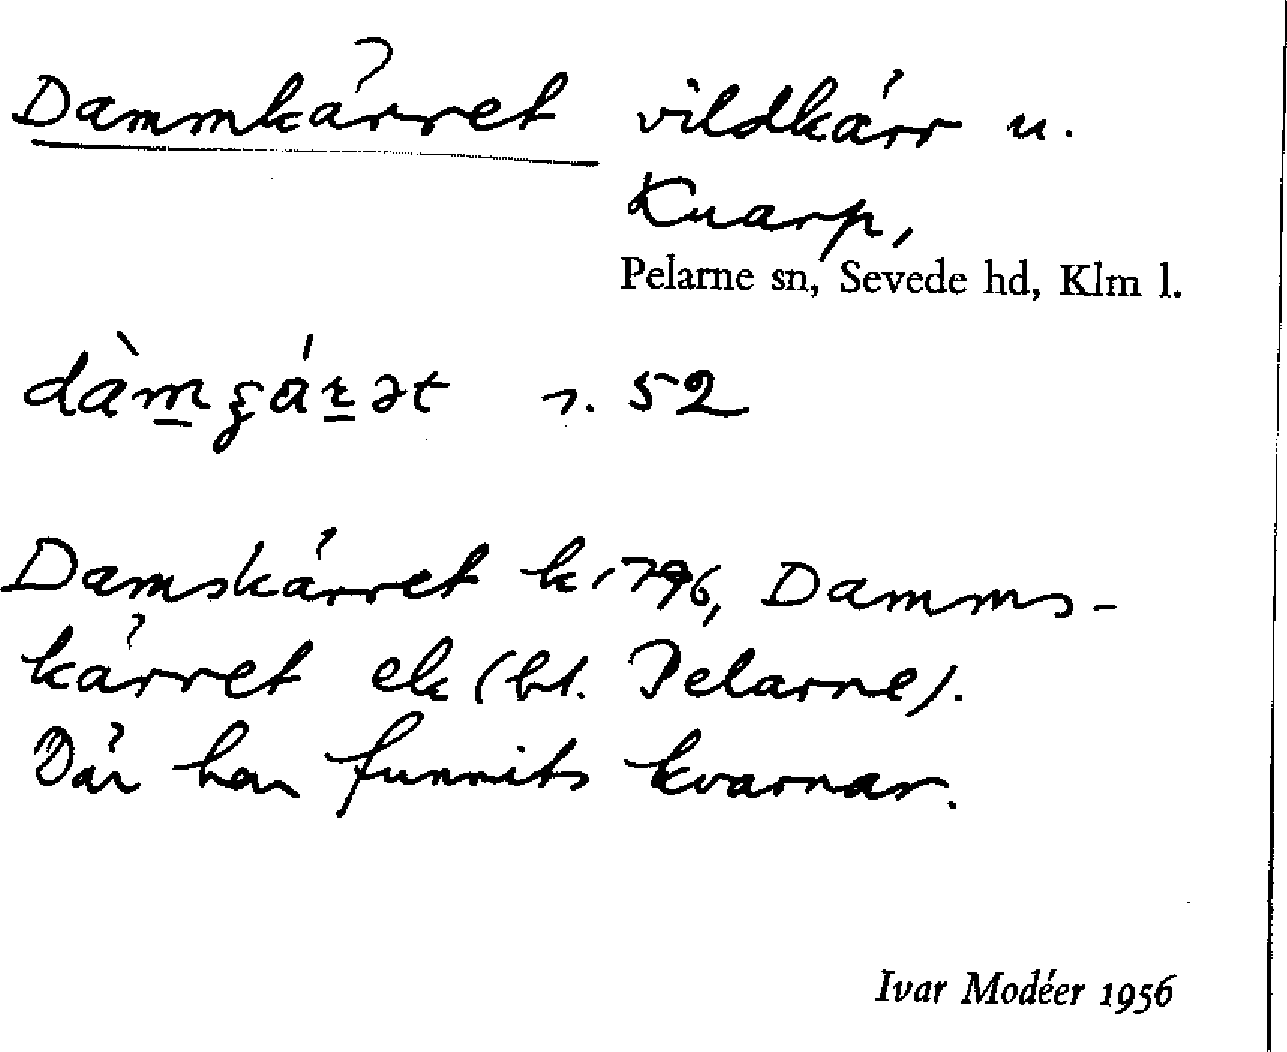 Dammkärret vildkärr u.
Knarp,
Pelarne sn, Sevede hd, Klm l.
dàm̲ʒár̲ət r. 52
Damskärret k 1796, Damms-
kärret ek (bl. Pelarne).
Där har funnits kvarnar.
Ivar Modéer 1956